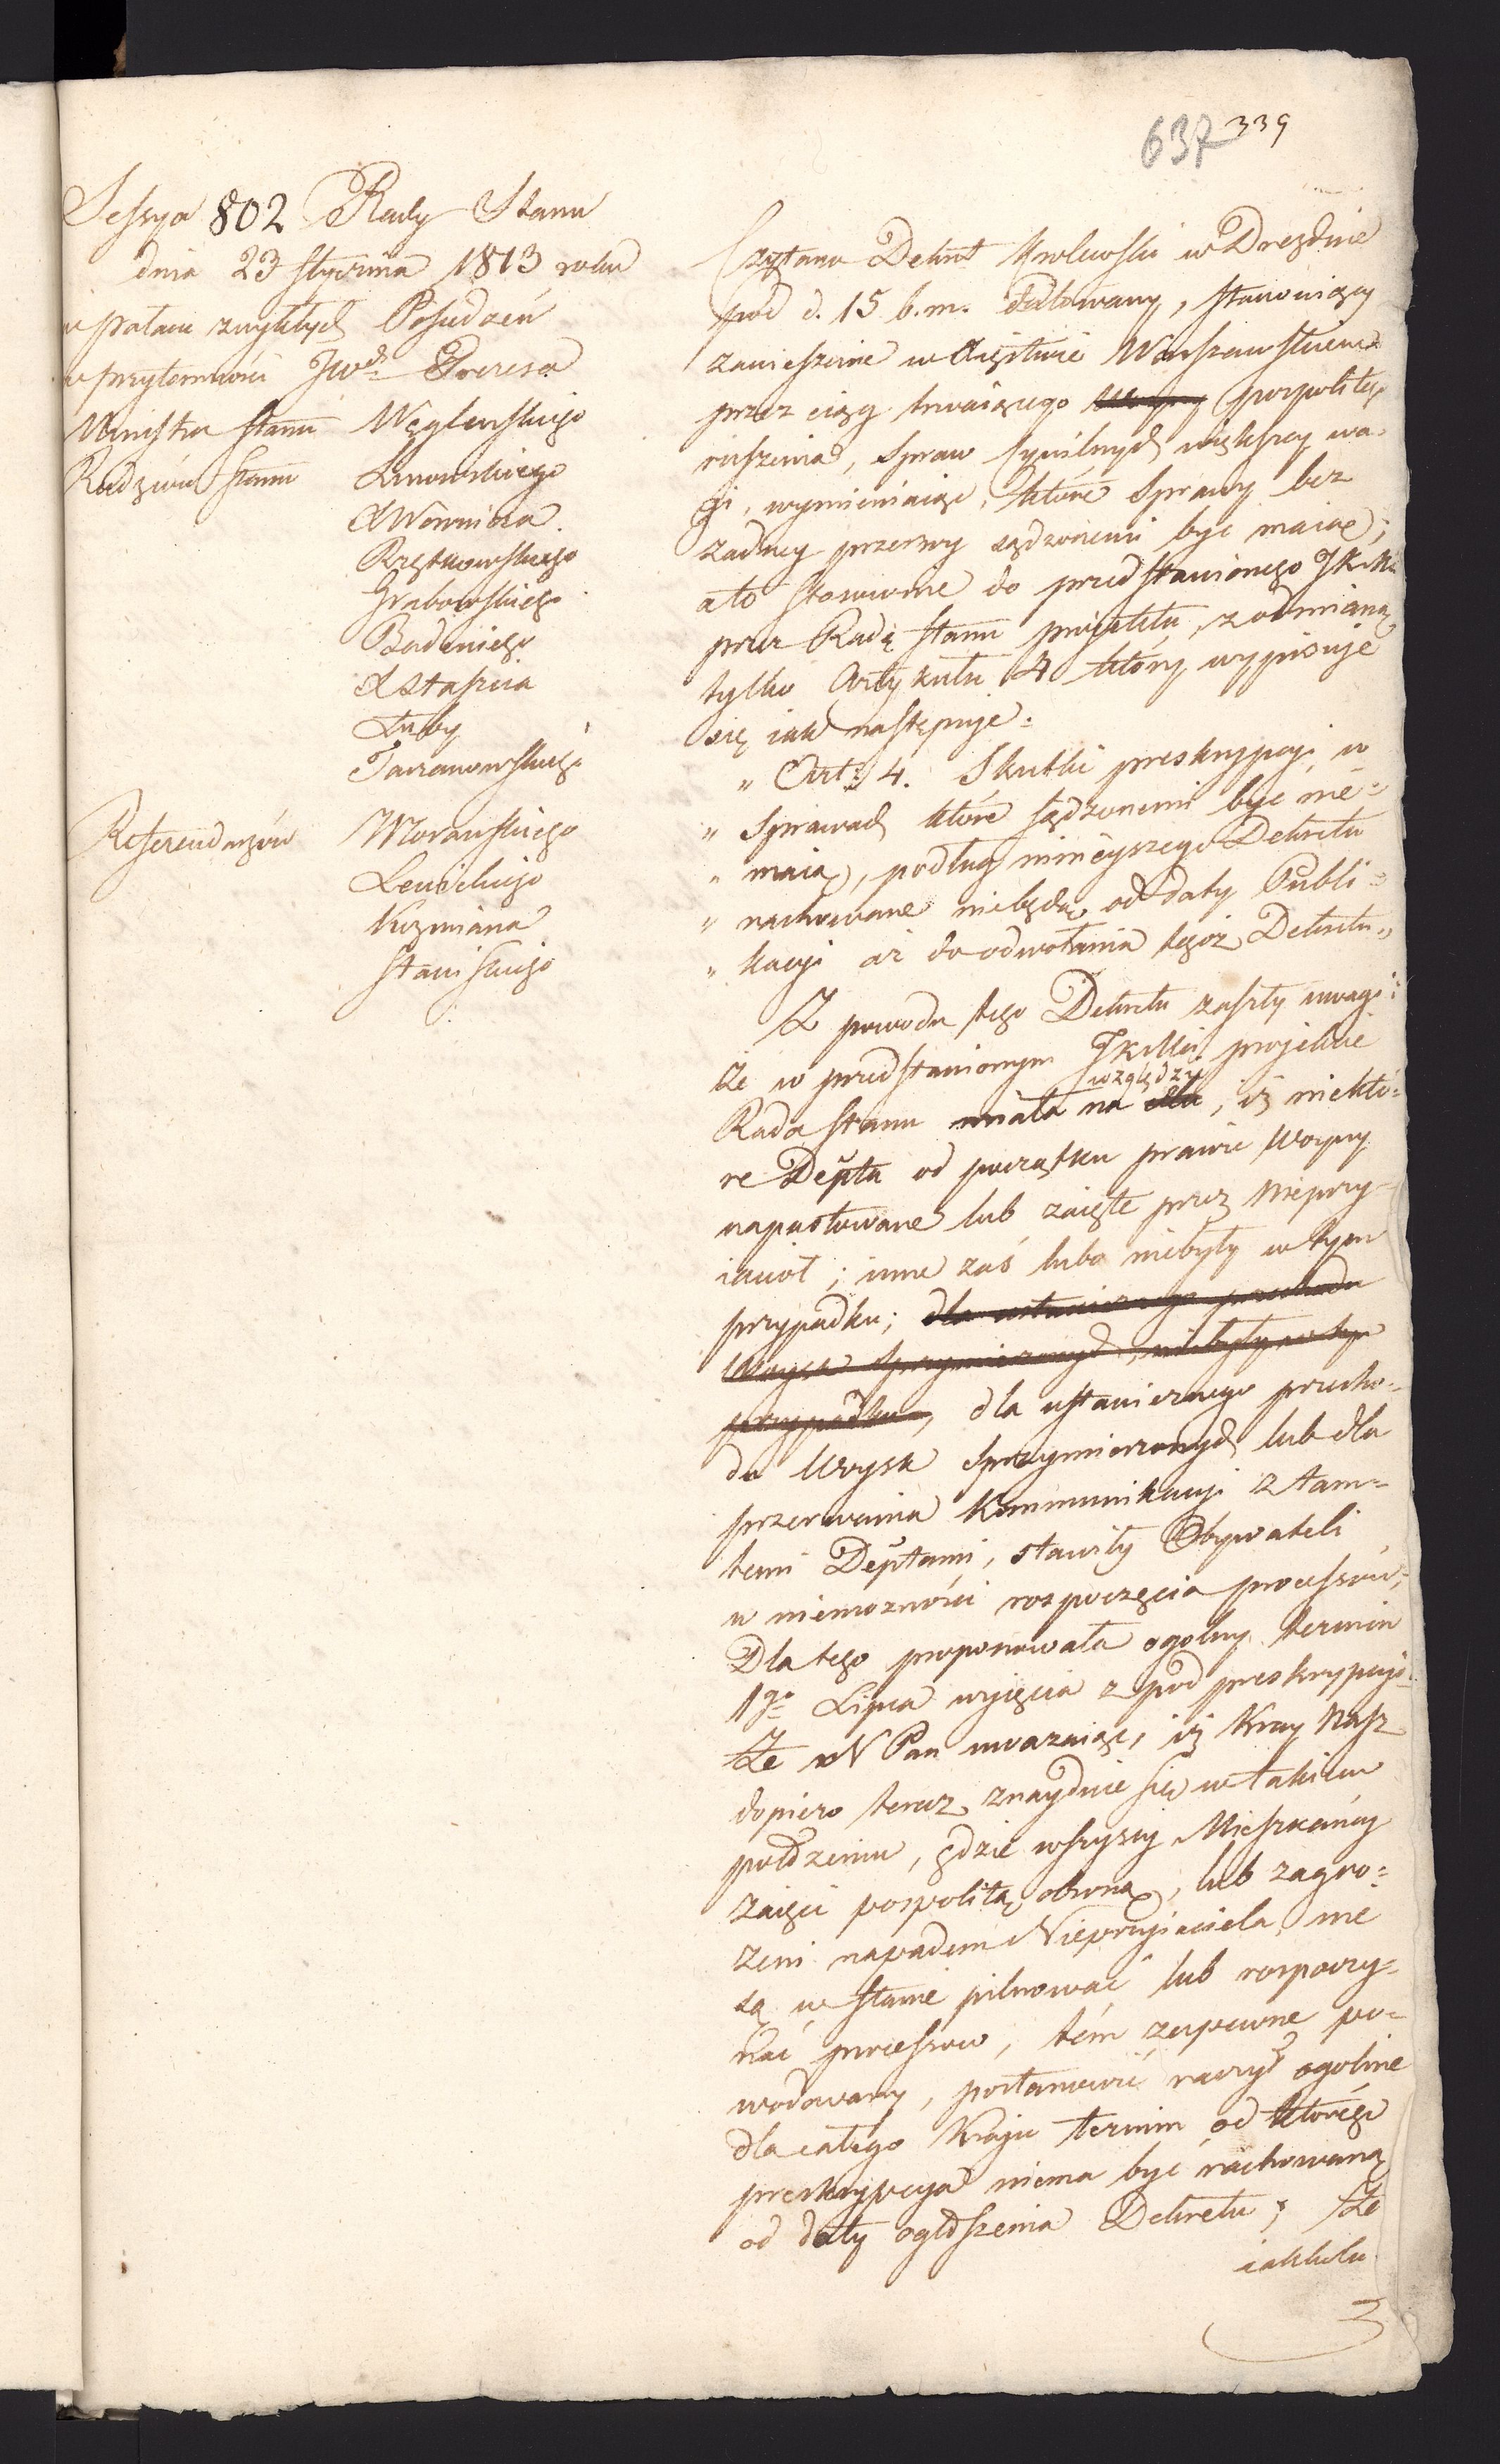 637 339
Sessya 802 Rady Stanu
dnia 23 stycznia 1813 roku
w pałacu zwykłych Posiedzeń
w przytomności JWch Prezesa
Ministra Stanu Węgleńskiego
Radzców Stanu Linowskiego
Woźnicza
Rzętkowskiego
Grabowskiego
Badeniego
Stasica
Łuby
Tarzanowskiego
Referendarzów Morawskiego
Lewickiego
Kozmiana
Stawiskiego
Czytano Dekret Krolewski w Dreznie
pod d. 15 b.m. datowany, stanowiący
zawieszenie w Xięstwie Warszawskiem
przez ciąg trwaiącego pospolitego
ruszenia, Spraw Cywilnych większey wa-
gi, wymieniaiąc, które Sprawy bez
żadney przerwy sądzonemi być maią;
a to stosownie do przedstawionego JKMci
przez Radę Stanu projektu, z odmianą
tylko Artykułu 4 który wypisuje
się iak następuje:
„ Art: 4. Skutki preskrypcyi w
„ Sprawach które sądzonemi być nie=
„ maią, podług ninieyszego Dekretu
„ rachowane niebędą od daty Publi=
„ kacyi aż do odwołania tegoż Dekretu„
Z powodu tego Dekretu zaszły uwagi:
że w przedstawionym JKMci projekcie
względzie
Rada Stanu miała na oku, iż niektó=
re Depta od początku prawie Woyny
napastowane lub zaięte przez Nieprzy-
iaciół; inne zaś lubo niebyły w tym
przypadku; dla ustawicznego przechodu
Woysk Sprzymierzonych, niebyły w tym
przypadku, dla ustawicznego przecho=
du Woysk Sprzymierzonych lub dla
przerwania Kommunikacyi z tam=
temi Deptami, stawiły Obywateli
w niemożności rozpoczęcia processów;
Dla tego proponowała ogolny termin
1go Lipca wyjęcia z pod preskrypcyi.
Że N Pan uważaiąc, iż Kray Nasz
dopiero teraz znayduie się w takiem
położeniu, gdzie wszyscy Mieszkańcy
zaięci pospolitą obroną, lub zagro=
żeni napadem Nieprzyiaciela, nie
są w stanie pilnować lub rospoczy=
nać processow, tém zapewne po=
wodowany, postanowić raczył ogolnie
dla całego Kraju termin od którego
preskrypcya niema być rachowaną
od daty ogłoszenia Dekretu; Że
iakkolw